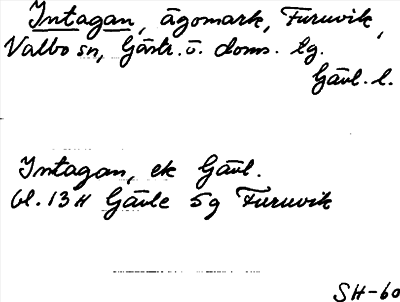 Intagan, ägomark, Furuvik,
Valbo sn, Gästr. ö. doms. lg.
Gävl. l.
Intagan, ek Gävl.
bl. 13H Gävle 5g Furuvik
SH-60